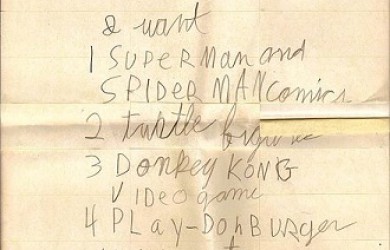 I want
1 SUPERMan and
SPIDERMAN comics
2 turtle
3 DOnkey KONG
VIDEO game
4 PLay-DOh BURger